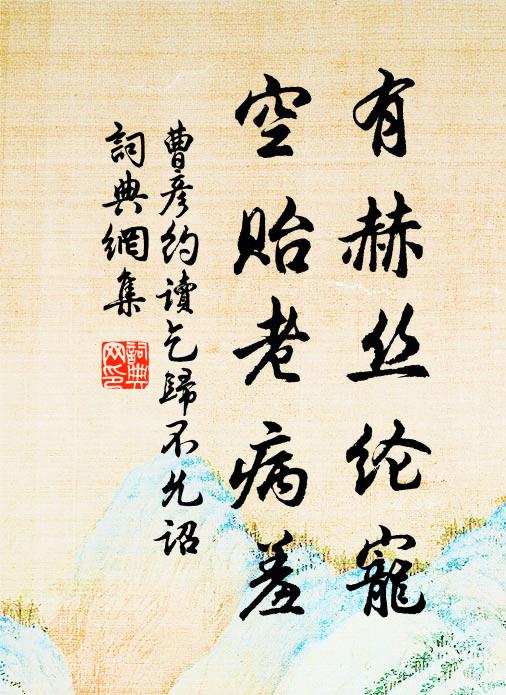 有赫丝纶寵
空贻老病羞
曹彦约讀乞歸不允诏
詞典網集
詞典
网印